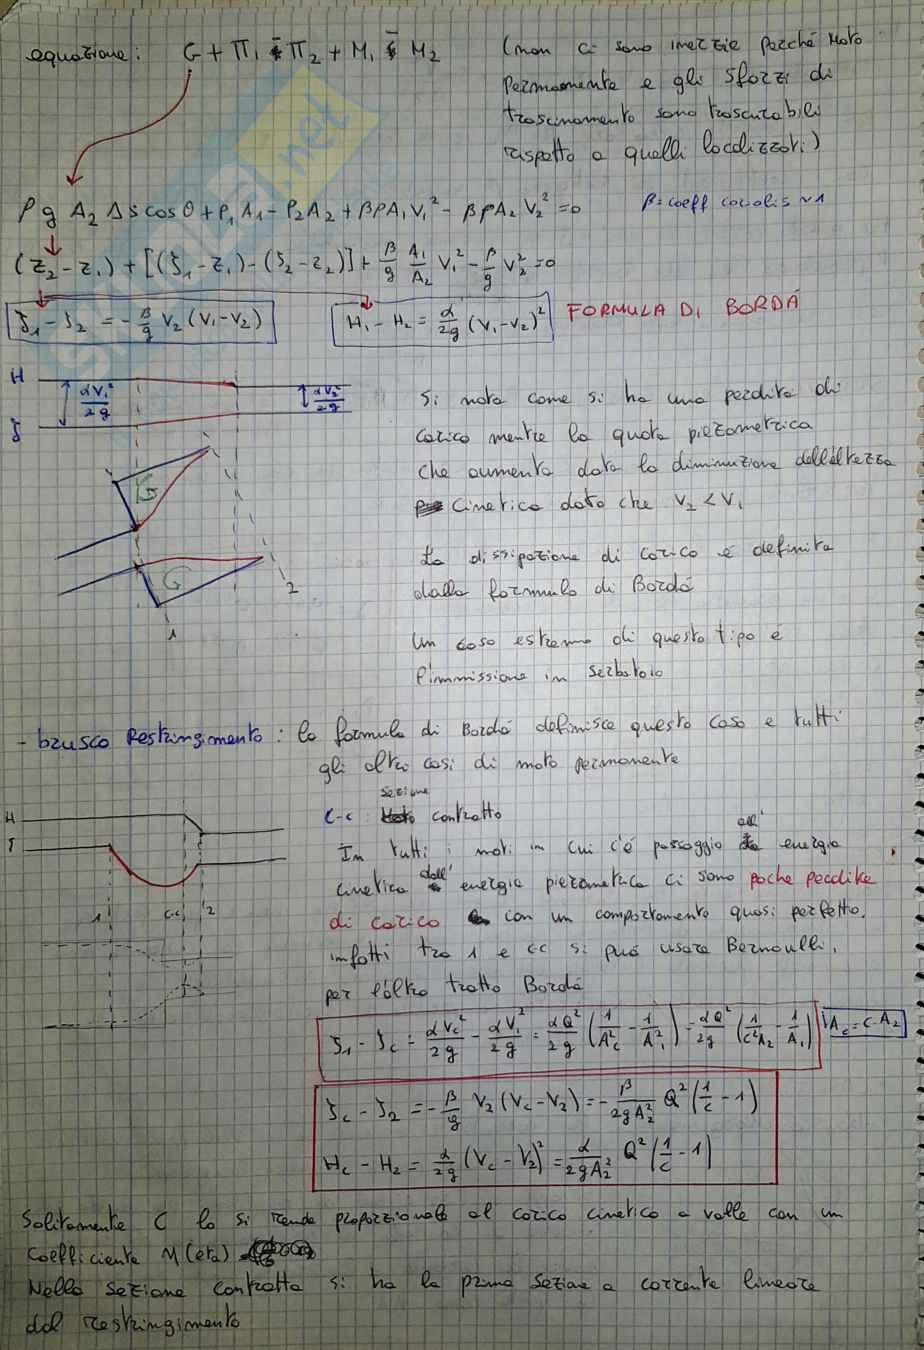 equazione: G + Π₁ - Π₂ + M₁ - M₂ (non ci sono inerzie perché moto
permanente e gli sforzi di
trascinamento sono trascurabili
rispetto a quelli localizzati)
ρ g A₂ Δs cos θ + P₁ A₁ - P₂ A₂ + βρA₁V₁² - βρA₂V₂² = 0 β = coeff coriolis ~ 1
(z₂ - z₁) + [(ζ₁ - z₁) - (ζ₂ - z₂)] + β/g A₁/A₂ V₁² - β/g V₂² = 0
ζ₁ - ζ₂ = - β/g V₂ (V₁ - V₂) H₁ - H₂ = α/2g (V₁ - V₂)² FORMULA DI BORDÁ
H
αV₁²/2g αV₂²/2g
ζ
Si nota come si ha una perdita di
carico mentre la quota piezometrica
che aumenta data la diminuzione dell'altezza
cinetica dato che V₂ < V₁
La dissipazione di carico é definita
dalla formula di Bordá
Un caso estremo di questo tipo é
l'immissione in serbatoio
G
G
1
2
- brusco Restringimento: la formula di Bordá definisce questo caso e tutti
gli altri casi di moto permanente
H
ζ
1 c-c 2
C-c: sezione contratta
In tutti i moti in cui c'é passaggio all' energia
cinetica dall' energia piezometrica ci sono poche perdite
di carico con un comportamento quasi perfetto,
infatti tra 1 e cc si può usare Bernoulli,
per l'altro tratto Bordá
ζ₁ - ζc = αVc²/2g - αV₁²/2g = αQ²/2g (1/Ac² - 1/A₁²) = αQ²/2g (1/c²A₂ - 1/A₁) Ac = c·A₂
ζc - ζ₂ = - β/g V₂ (Vc - V₂) = - β/2gA₂² Q² (1/c - 1)
Hc - H₂ = α/2g (Vc - V₂)² = α/2gA₂² Q² (1/c - 1)
Solitamente C lo si rende proporzionale al carico cinetico a valle con un
coefficiente M (eta)
Nella sezione contratta si ha la prima sezione a corrente lineare
dal restringimento